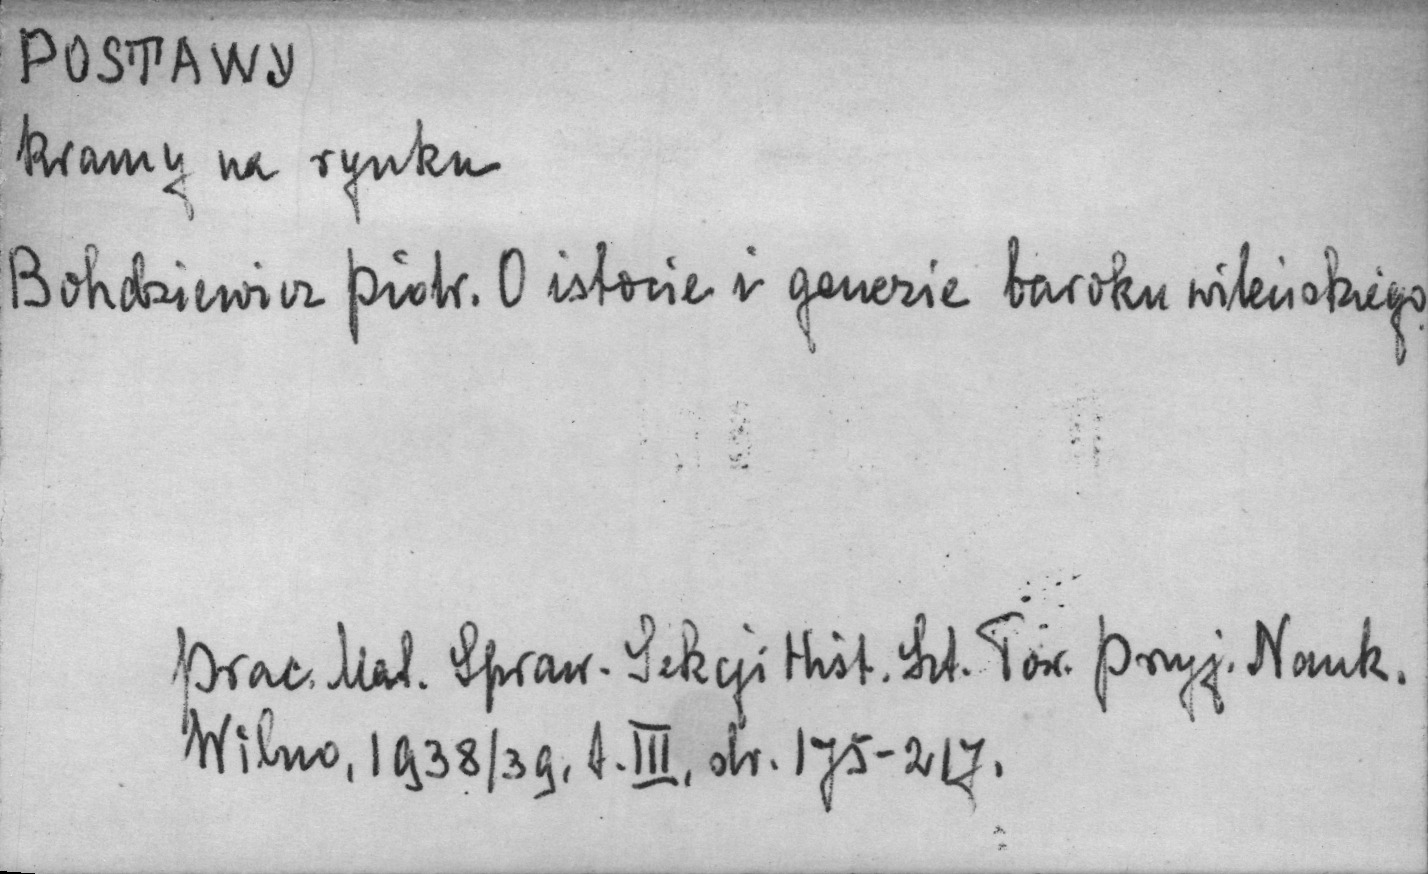 POSTAWY
kramy na rynku
Bohdziewicz Piotr. O istocie i genezie baroku wileńskiego.
Prac. Mat. Spraw. Sekcji Hist. Szt. Tow. Przyj. Nauk.
Wilno, 1938/39, t. III, str. 175-217.